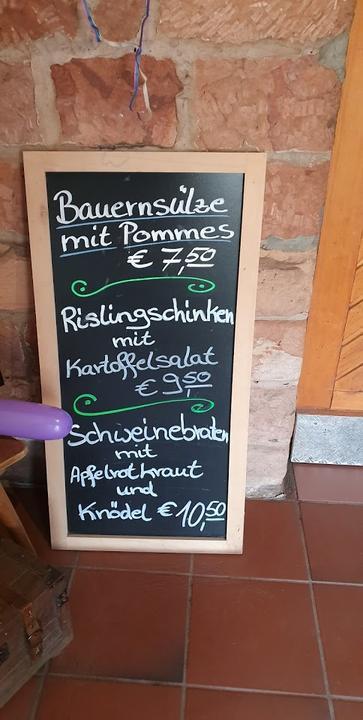 Bauernsülze
mit Pommes
€ 7,50
Rislingschinken
mit
Kartoffelsalat
€ 9,50
Schweinebraten
mit
Apfelrotkraut
und
Knödel € 10,50